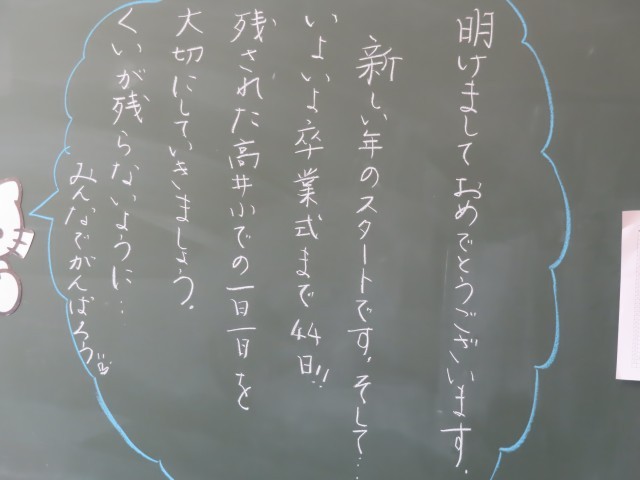 明けましておめでとうございます。
新しい年のスタートです。そして…
いよいよ卒業式まで44日!!
残された高井小での一日一日を
大切にしていきましょう。
くいが残らないように…
みんなでがんばろう